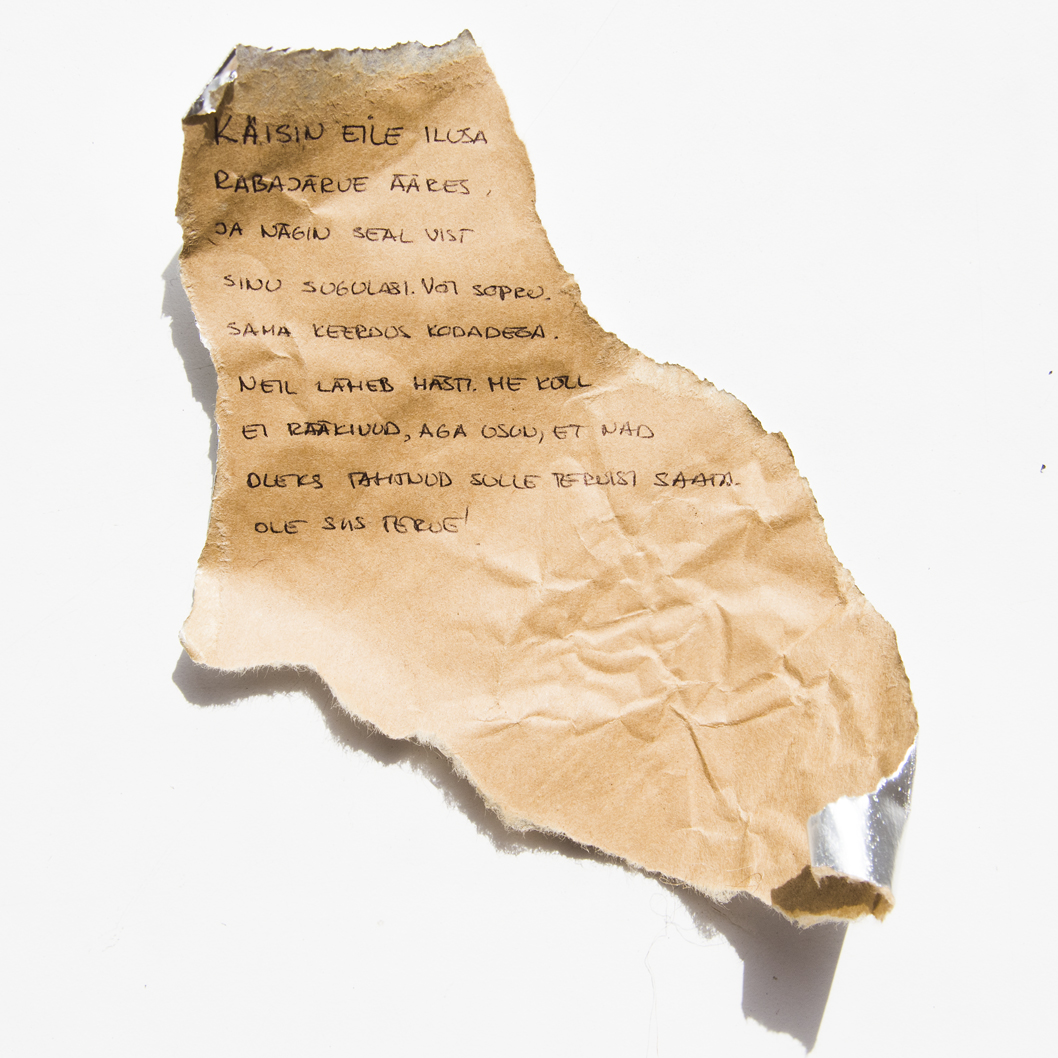 KÄISIN EILE ILUSA
RABAJÄRVE ÄÄRES,
JA NÄGIN SEAL VIST
SINU SUGULASI. VÕI SÕPRU.
SAMA KEERDUS KODADEGA.
NEIL LÄHEB HÄSTI. ME KÜLL
EI RÄÄKINUD, AGA USUN, ET NAD
OLEKS TAHTNUD SULLE TERVISI SAATA.
OLE SIIS TERVE!